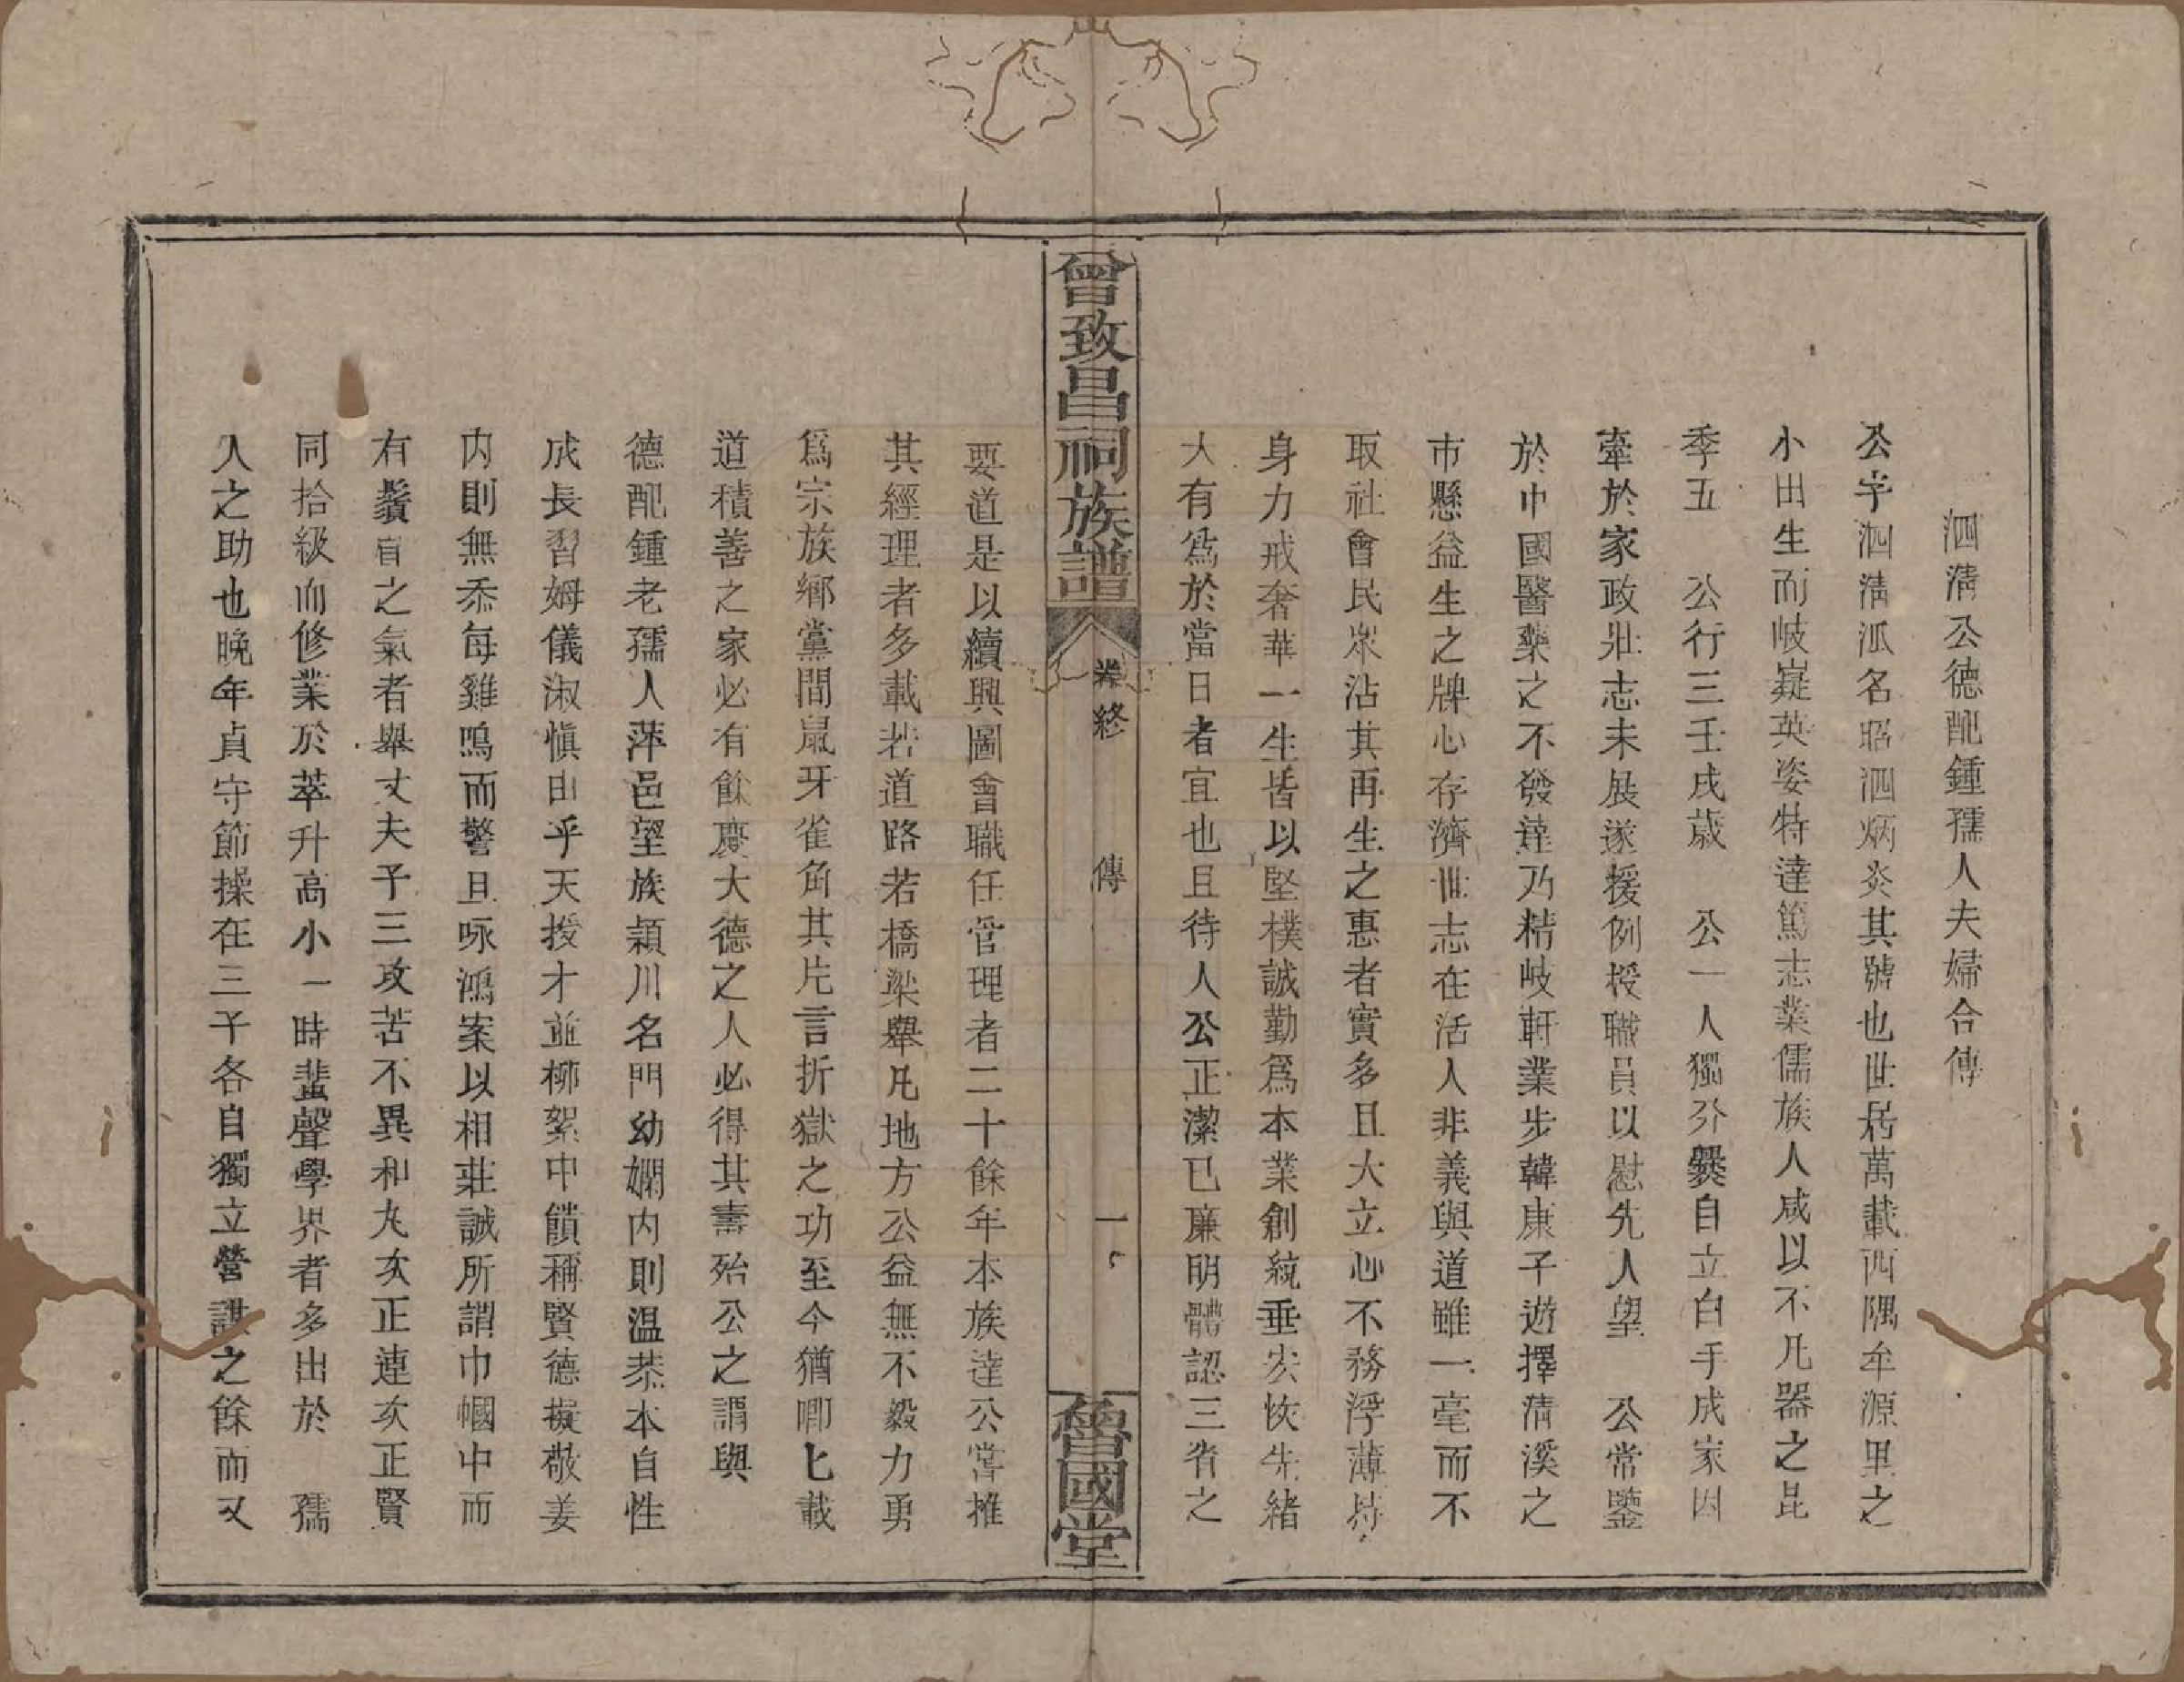 泗淸公德配鍾孺人夫婦合傳
公字泗淸派名昭泗炳炎其號也世居萬載西隅牟源里之
小田生而岐嶷英姿特達篤志業儒族人咸以不凡器之昆
季五　公行三壬戌歲　公一人獨分爨自立白手成家因
牽於家政壯志未展遂援例授職員以慰先人望　公常鑒
於中國醫藥之不發達乃精岐軒業步韓康子遊擇清溪之
市懸益生之牌心存濟世志在活人非義與道雖一毫而不
取社會民衆沾其再生之惠者實多且大立心不務浮薄持
身力戒奢華一生皆以堅樸誠勤爲本業創統垂宏恢先緒
大有爲於當日者宜也且待人公正潔已廉明體認三省之
曾致昌祠族譜
卷終
傳
一
魯國堂
要道是以續興圖會職任管理者二十餘年本族達公嘗推
其經理者多載若道路若橋梁舉凡地方公益無不毅力勇
爲宗族鄉黨間鼠牙雀角其片言折獄之功至今猶啣匕載
道積善之家必有餘慶大德之人必得其壽殆公之謂與
德配鍾老孺人萍邑望族穎川名門幼嫻内則温恭本自性
成長習姆儀淑愼由乎天授才並柳絮中饋稱賢德擬敬姜
内則無忝每雞鳴而警旦咏鴻案以相莊誠所謂巾幗中而
有鬚眉之氣者舉丈夫子三攻苦不異和丸次正連次正賢
同拾級而修業於萃升高小一時蜚聲學界者多出於　孺
人之助也晚年貞守節操在三子各自獨立營謀之餘而又